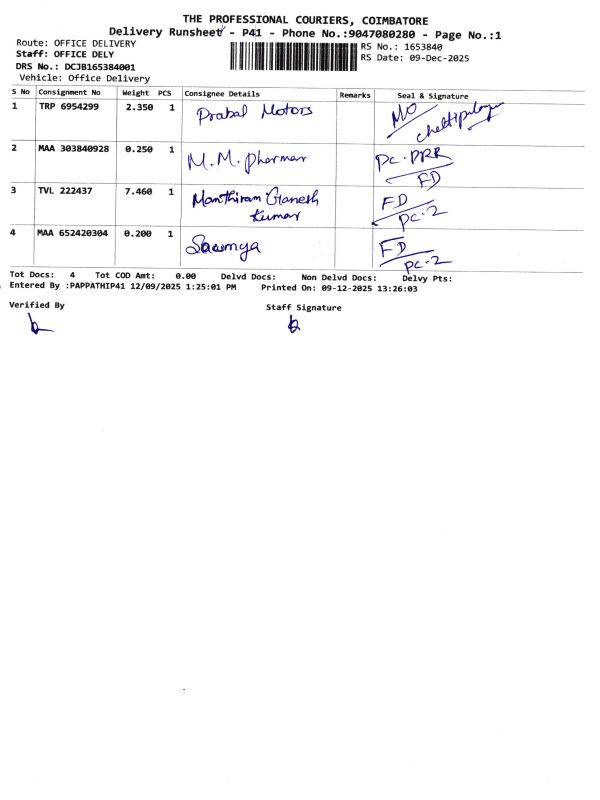 THE PROFESSIONAL COURIERS, COIMBATORE
Delivery Runsheet - P41 - Phone No.:9047080280 - Page No.:1
Route: OFFICE DELIVERY
RS No.: 1653840
Staff: OFFICE DELY
RS Date: 09-Dec-2025
DRS No.: DCJB165384001
Vehicle: Office Delivery
S No Consignment No Weight PCS Consignee Details Remarks Seal & Signature
1 TRP 6954299 2.350 1 Prabal Motors MO
2 MAA 303840928 0.250 1 M.M. Pharmar PC-PRR
FD
3 TVL 222437 7.460 1 Manthiram Ganesh FD
Kumar PC-2
4 MAA 652420304 0.200 1 Saumya FD
PC-2
Tot Docs: 4 Tot COD Amt: 0.00 Delvd Docs: Non Delvd Docs: Delvy Pts:
Entered By :PAPPATHIP41 12/09/2025 1:25:01 PM Printed On: 09-12-2025 13:26:03
Verified By
Staff Signature